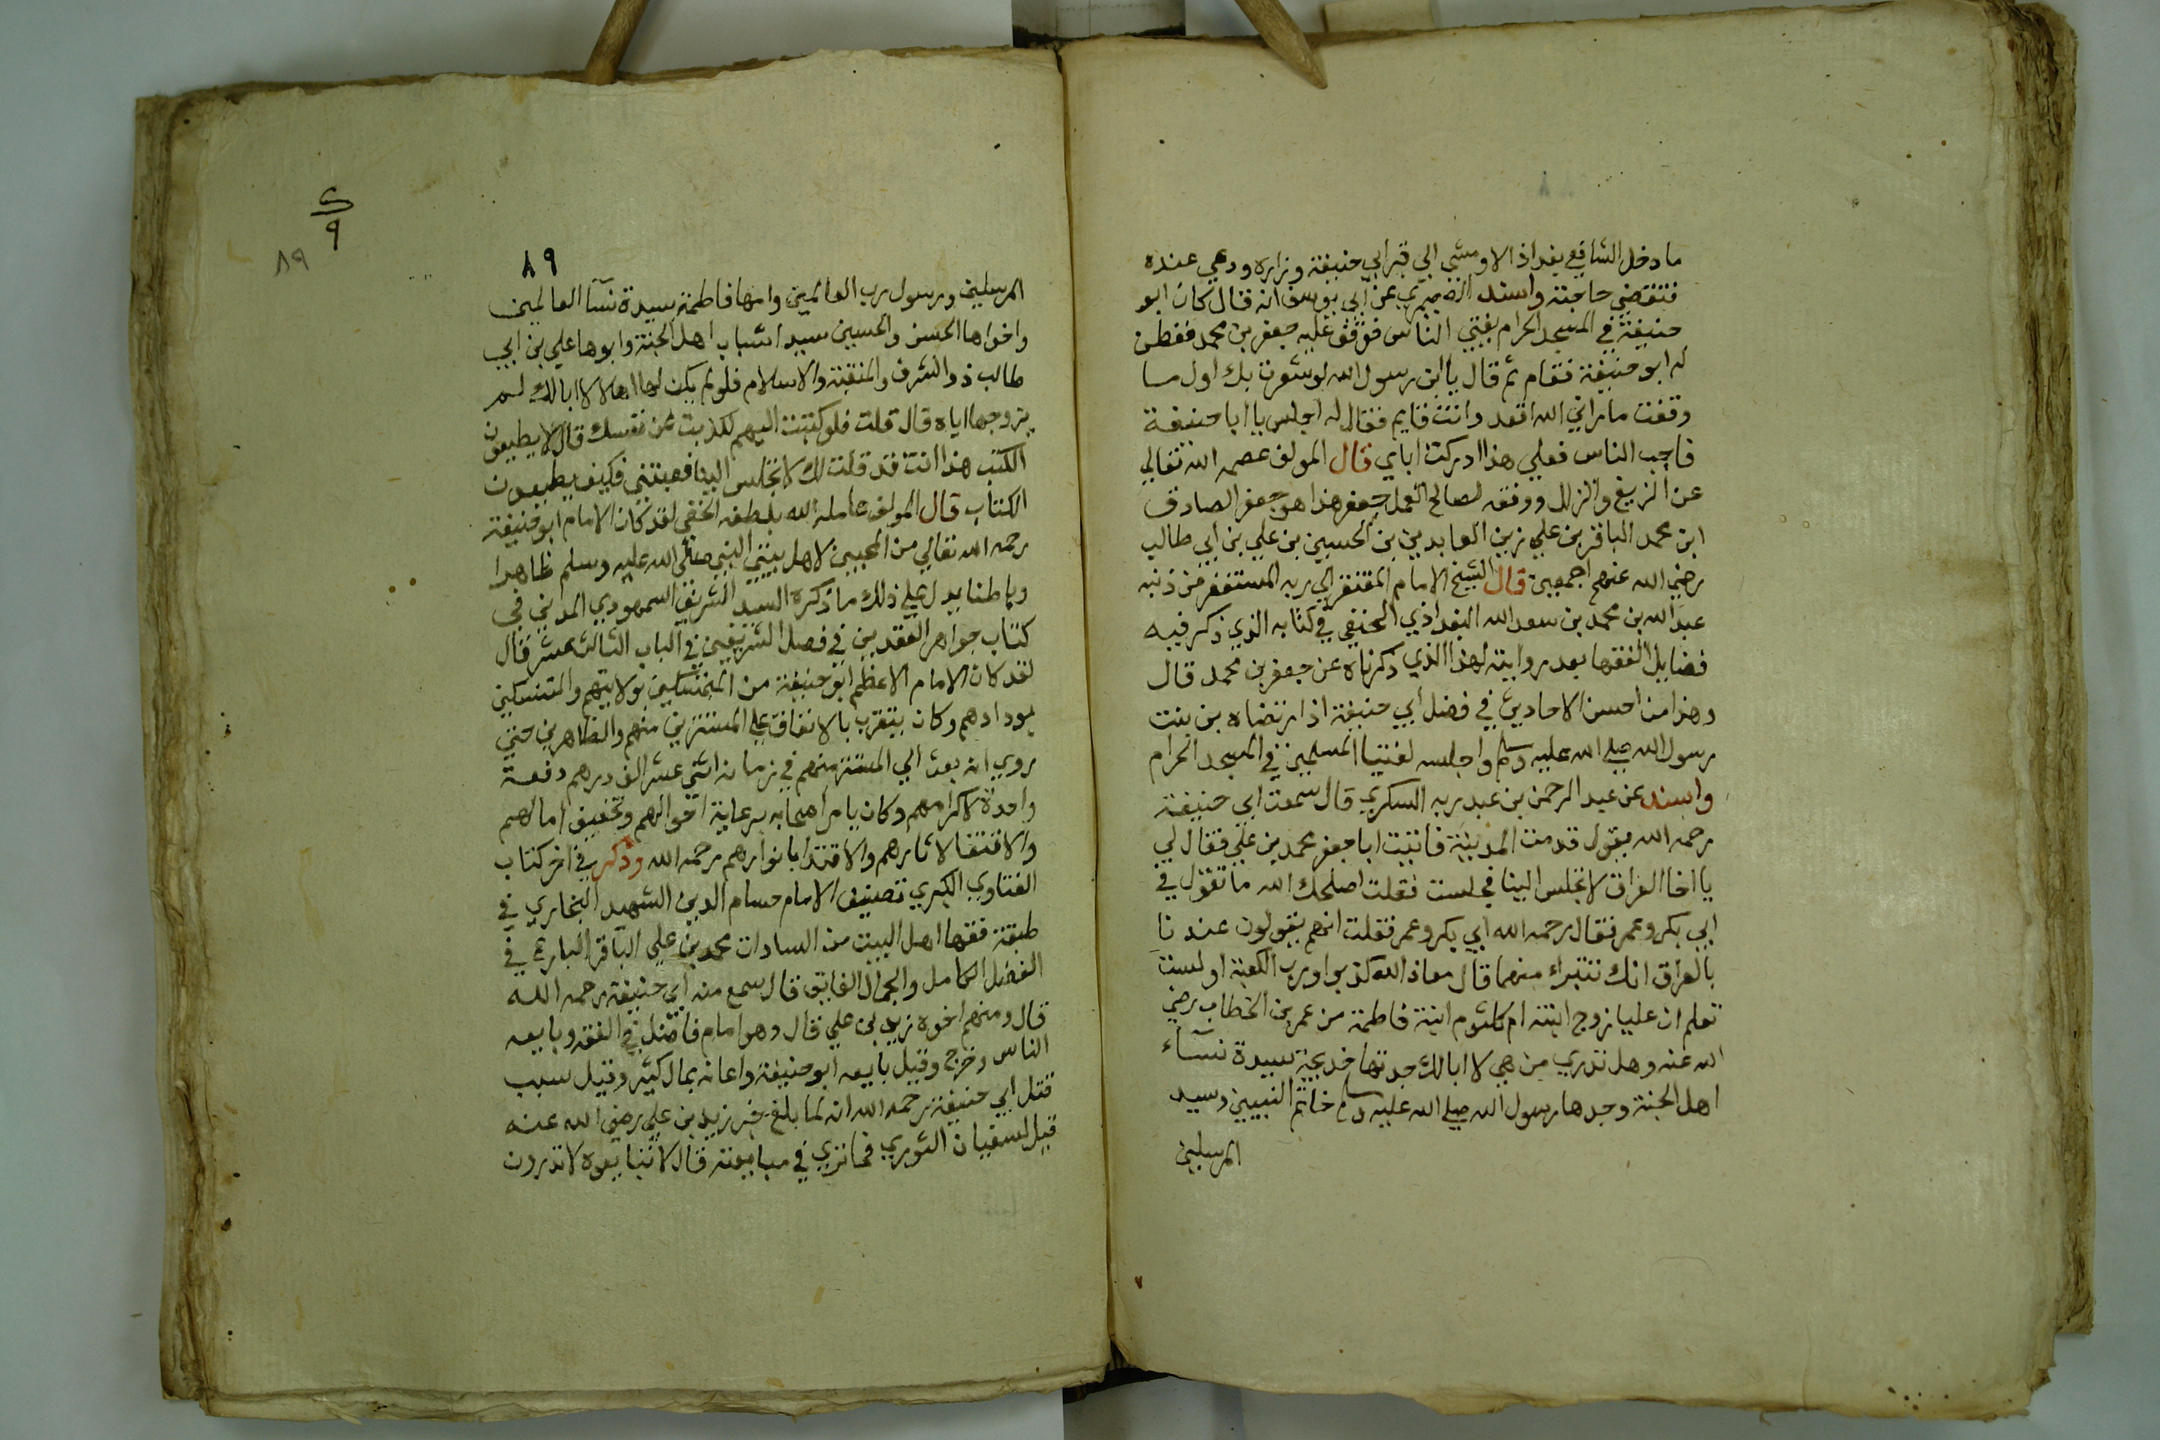 ما دخل الشافعي بغداذ الا ومشي الي قبر ابي حنيفة وزاره ودعي عنده
فتقضي حاجته واسند الصيمري عن ابي يوسف انه قال كان ابو
حنيفة في المسجد الحرام يفتي الناس فوقف عليه جعفر بن محمد ففطن
له ابو حنيفة فقام ثم قال يا ابن رسول الله لو شعرت بك اول ما
وقفت ما يراني الله اقعد وانت قايم فقال له اجلس يا ابا حنيفة
فاجب الناس فعلي هذا ادركت اباي قال المولف عصمه الله تعالي
عن الزيغ والزلل ووفقه لصالح العمل جعفر هذا هو جعفر الصادق
ابن محمد الباقر بن علي زين العابدين بن الحسين بن علي بن ابي طالب
رضي الله عنهم اجمعين قال الشيخ الامام المفتقر الي ربه المستغفر من ذنبه
عبد الله بن محمد بن سعد الله البغداذي الحنفي في كتابه الذي ذكر فيه
فضايل الفقها بعد روايته لهذا الذي ذكرناه عن جعفر بن محمد قال
وهذا من احسن الاحاديث في فضل ابي حنيفة اذ ارتضاه بن بنت
رسول الله صلي الله عليه وسلم واجلسه لفتيا المسلمين في المسجد الحرام
واسند عن عبد الرحمن بن عبد ربه السكري قال سمعت ابي حنيفة
رحمه الله يقول قدمت المدينة فاتيت ابا جعفر محمد بن علي فقال لي
يا اخا العراق لا تجلس الينا في لست فقلت اصلحك الله ما تقول في
ابي بكر وعمر فقال رحمه الله ابي بكر وعمر فقلت انهم يقولون عندنا
بالعراق انك تتبراء منهما قال معاذ الله كذبوا ورب الكعبة او لست
تعلم ان عليا زوج ابنته ام كلثوم ابنة فاطمة من عمر بن الخطاب رضي
الله عنه وهل تدري من هي لا ابا لك جدتها خديجة سيدة نسآء
اهل الجنة وجدها رسول الله صلي الله عليه وسلم خاتم النبيين وسيد
المرسلين
٢
٩
٨٩
٨٩
المرسلين ورسول رب العالمين وامها فاطمة سيدة نسآ العالمين
واخواها الحسن والحسين سيدا شباب اهل الجنة وابوها علي بن ابي
طالب ذو الشرف والمنقبة والاسلام فلو لم يكن لها اهلا لا ابا لك لم
يزوجها اياه قال قلت فلو كتبت اليهم لكذبت عن نفسك قال لا يطيعون
الكتب هذا انت قد قلت لك لا تجلس الينا فعصيتني فكيف يطيعون
الكتاب قال المولف عامله الله بلطفه الخفي لقد كان الامام ابو حنيفة
رحمه الله تعالي من المحبين لاهل بيت النبي صلي الله عليه وسلم ظاهرا
وباطنا يدل علي ذلك ما ذكره السيد الشريف السمهودي المدني في
كتاب جواهر العقدين في فضل الشريفين في الباب الثالث عشر قال
لقد كان الامام الاعظم ابو حنيفة من المتمسكين بولايتهم والمتنسكين
بودادهم وكان يتقرب بالانفاق علي المستترين منهم والظاهرين حتي
روي انه بعث الي المستتر منهم في زمانه اثني عشر الف درهم دفعة
واحدة لاكرامهم وكان يامر اصحابه برعاية احوالهم وتحقيق امالهم
والاقتفا لاثارهم والاقتدا بانوارهم رحمه الله وذكر في اخر كتاب
الفتاوي الكبري تصنيف الامام حسام الدين الشهيد البخاري في
طبقة فقها اهل البيت من السادات محمد بن علي الباقر البارع في
الفضل الكامل والجمال الفايق قال سمع منه ابي حنيفة رحمه الله
قال ومنهم اخوه زيد بن علي قال وهو امام فاضل في الفقه وبايعه
الناس وخرج وقيل بايعه ابو حنيفة واعانه بمال كثير وقيل سبب
قتل ابي حنيفة رحمه الله انه لما بلغ خبر زيد بن علي رضي الله عنه
قيل لسفيان الثوري فما تري في مبايعته قال لا تبايعوه لا تدرون